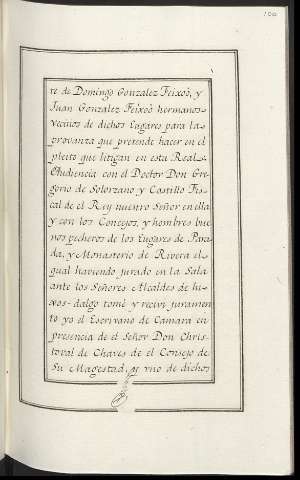 te de Domingo Gonzalez Feixoò, y
Juan Gonzalez Feixoò hermanos
vecinos de dichos Lugares para la
provanza que pretende hacer en el
pleito que litigan en esta Real
Audiencia con el Doctor Don Gre-
gorio de Solorzano y Castillo Fis-
cal de el Rey nuestro Señor en ella
y con los Concejos, y hombres bue
nos pecheros de los Lugares de Para
da, y Monasterio de Rivera el
qual haviendo jurado en la Sala
ante los Señores Alcaldes de hi-
xos-dalgo tomè y recivi juramen
to yo el Escrivano de Camara en
presencia de el Señor Don Chris-
toval de Chaves de el Consejo de
Su Magestad, y uno de dichos